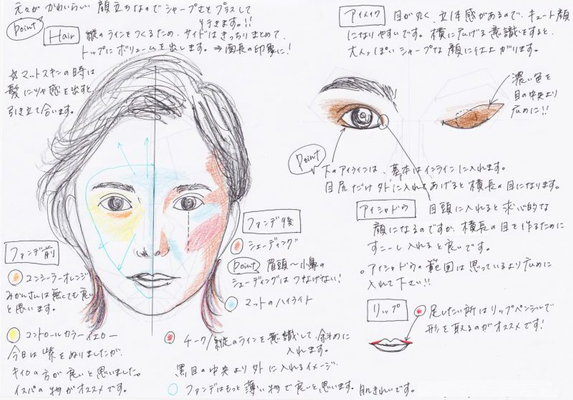 元々がかわいらしい顔立のなのでシャープさをプラスして
行きます。!!
Point
Hair
縦のラインをつくるため、サイドはきっちりまとめて、
トップにボリュームを出します。⇒面長の印象に!
☆マットスキンの時は
髪にツヤ感を出すと
引き立て合います。
ファンデ前
コンシーラーオレンジ
みかんさんは無しでも良い
と思います。
コントロールカラーイエロー
今日は紫をぬりましたが
キイロの方が良いと思いました。
イプサの物がオススメです。
ファンデ後
シェーディング
Point
眉頭〜小鼻の
シェーディングはつなげない!
マットのハイライト
チーク/縦のラインを意識して、斜めに
入れます。
黒目の中央より外に入れるイメージ
ファンデはもっと薄い物で良いと思います。肌きれいです。
アイメイク
目が丸く、立体感があるので、キュート顔
になりやすいです。横に広げる意識をすると、
大人っぽいシャープな顔に仕上がります。
濃い色を
目の中央より
広めに!!
Point
下のアイラインは、基本はインラインに入れます。
目尻だけ外に入れてあげると横長の目になります。
アイシャドウ
目頭に入れると求心的な
顔になるのですが、横長の目を作るために
すこーし入れると良いです。
○アイシャドウの範囲は思っているより広めに
入れて下さい!!
リップ
足したい所はリップペンシルで
形を取るのがオススメです!